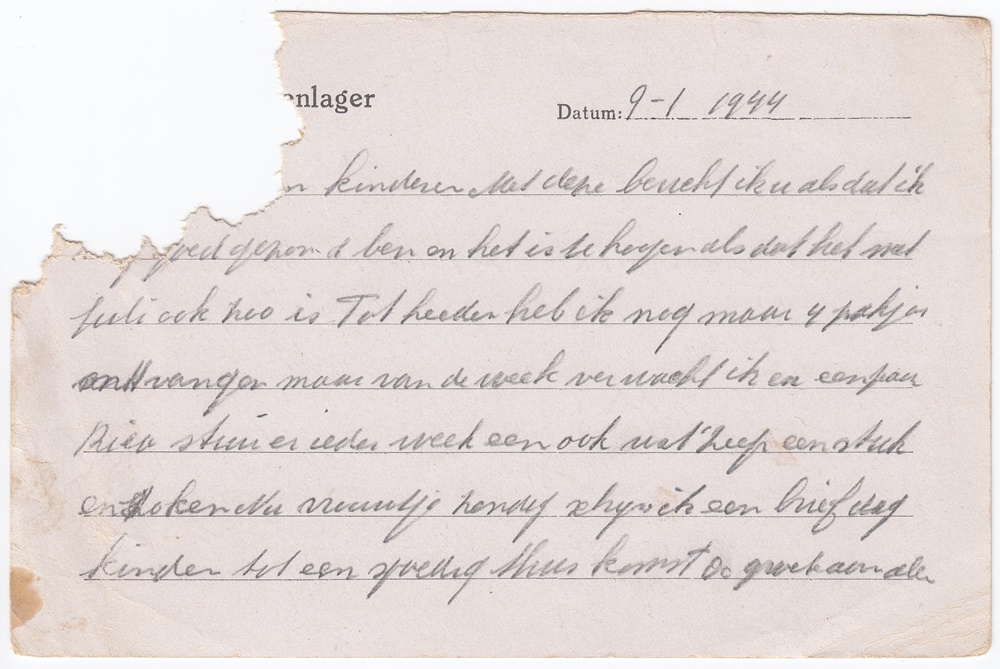 enlager
Datum: 9-1 1944
n kinderen Met deze bericht ik u als dat ik
goed gezond ben en het is te hopen als dat het met
juli ook zoo is Tot heeden heb ik nog maar 4 pakjes
ontvangen maar van de week verwacht ik er een paar
Rien stuur er ieder week een ook wat zeep een stuk
en koken Nu vrouwtje zondag schrijf ik een brief dag
kinder tot een spoedig thuis komst De groet aan allen